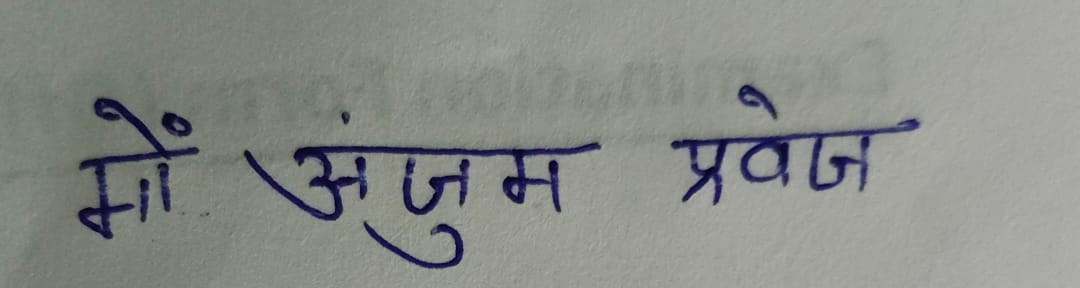 मों अंजुम प्रवेज